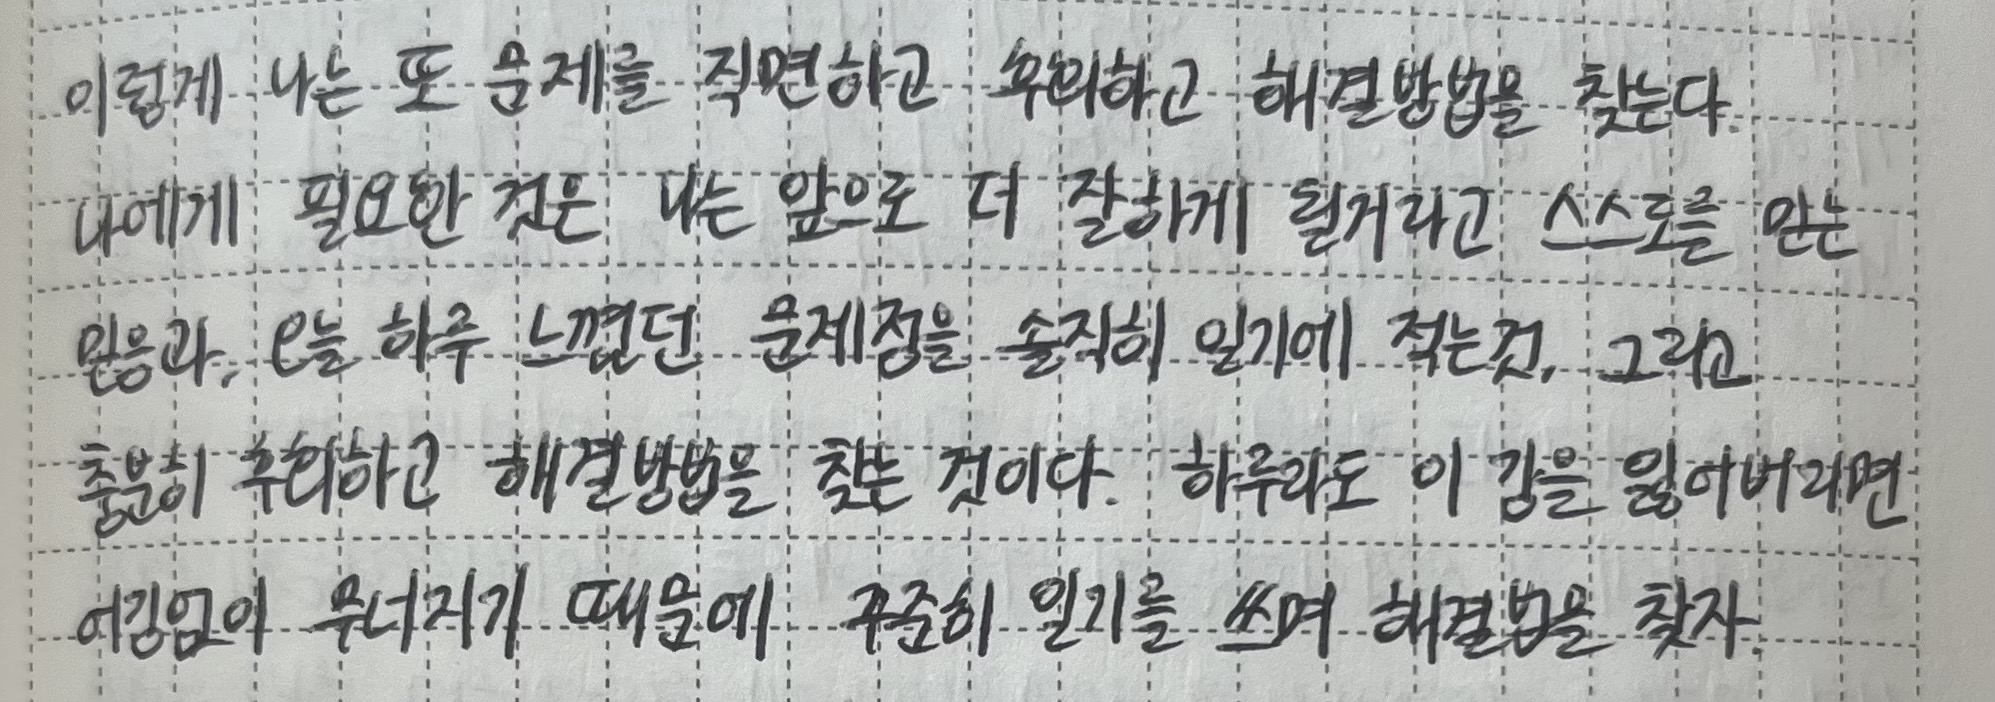 이렇게 나는 또 문제를 직면하고 후회하고 해결방법을 찾는다.
나에게 필요한 것은 나는 앞으로 더 잘하게 될거라고 스스로를 믿는
믿음과, 오늘 하루 느꼈던 문제점을 솔직히 일기에 적는것, 그리고
충분히 후회하고 해결방법을 찾는 것이다. 하루라도 이 감을 잃어버리면
어김없이 무너지기 때문에 꾸준히 일기를 쓰며 해결법을 찾자.